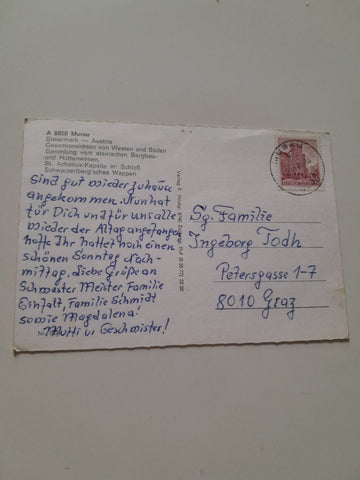 A 8850 Murau
Steiermark — Austria
Gesamtansichten von Westen und Süden
Sammlung vom steirischen Bergbau-
und Hüttenwesen,
St. Achatius-Kapelle im Schloß
Schwarzenberg'sches Wappen
Sind gut wieder zuhause
angekommen. Nun hat
für Dich und für uns alle
wieder der Alltag angefangen
hoffe Ihr hattet noch einen
schönen Sonntag Nach-
mittag. Liebe Grüße an
Schwester Meister Familie
Einfalt, Familie Schmidt
sowie Magdalena!
Mutti u Geschwister!
Verlag F.
Sg. Familie
Ingeborg Todh
Petersgasse 1-7
8010 Graz